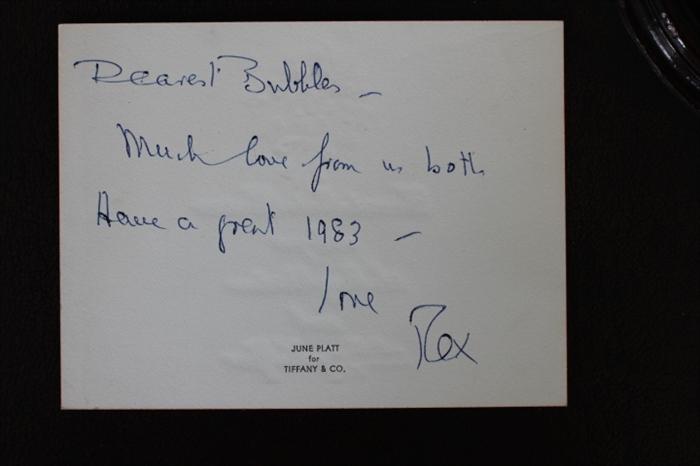 Dearest Bubbles –
Much love from us both
Have a great 1983 –
love
Rex
JUNE PLATT
for
TIFFANY & CO.